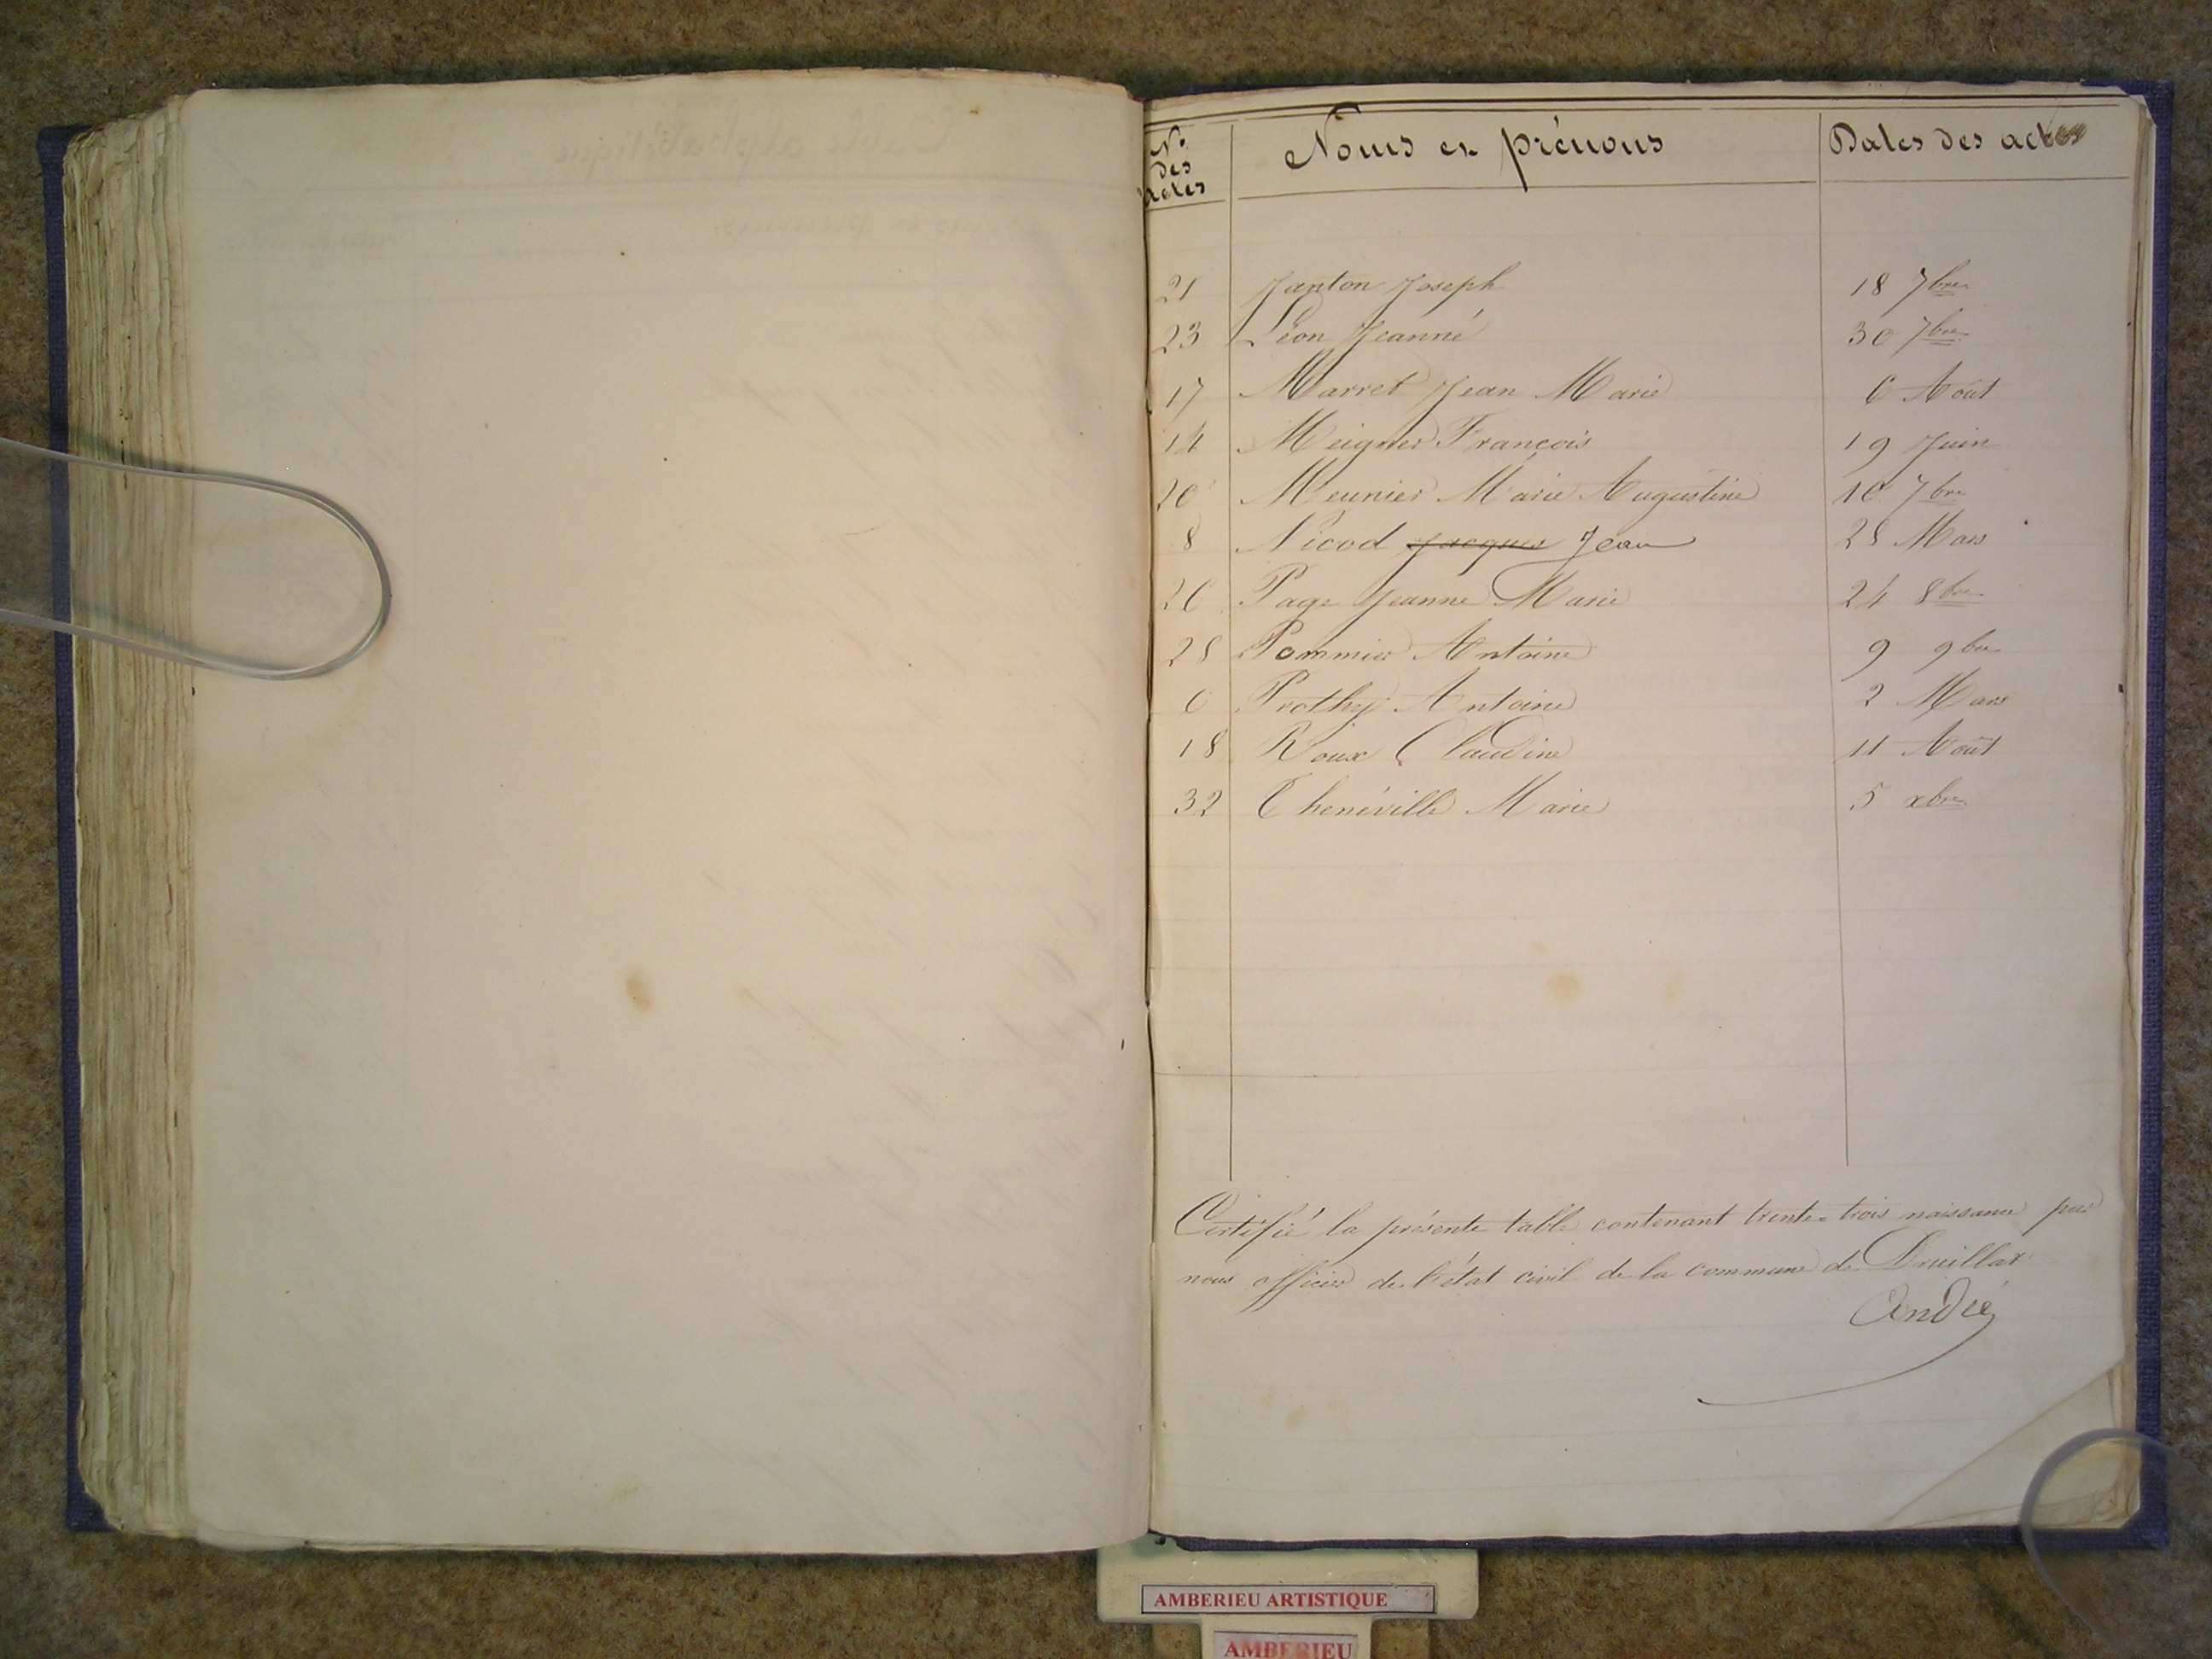 N.os
des
actes
Noms et prénoms
Dates des actes
21 Janton Joseph 18 7bre
23 Léon Jeanne 30 7bre
17 Marret Jean Marie 6 Août
14 Meignier François 19 Juin
20 Meunier Marie Augustine 10 7bre
8 Nicod Jacques Jean 28 Mars
26 Page Jeanne Marie 24 8bre
28 Pommier Antoine 9 9bre
6 Prothy Antoine 2 Mars
18 Roux Claudine 11 Août
32 Theneville Marie 5 xbre
Certifié la présente table contenant trente-trois naissance par
nous officier de l'état civil de la commune de Druillat
André
AMBERIEU ARTISTIQUE
AMBERIEU